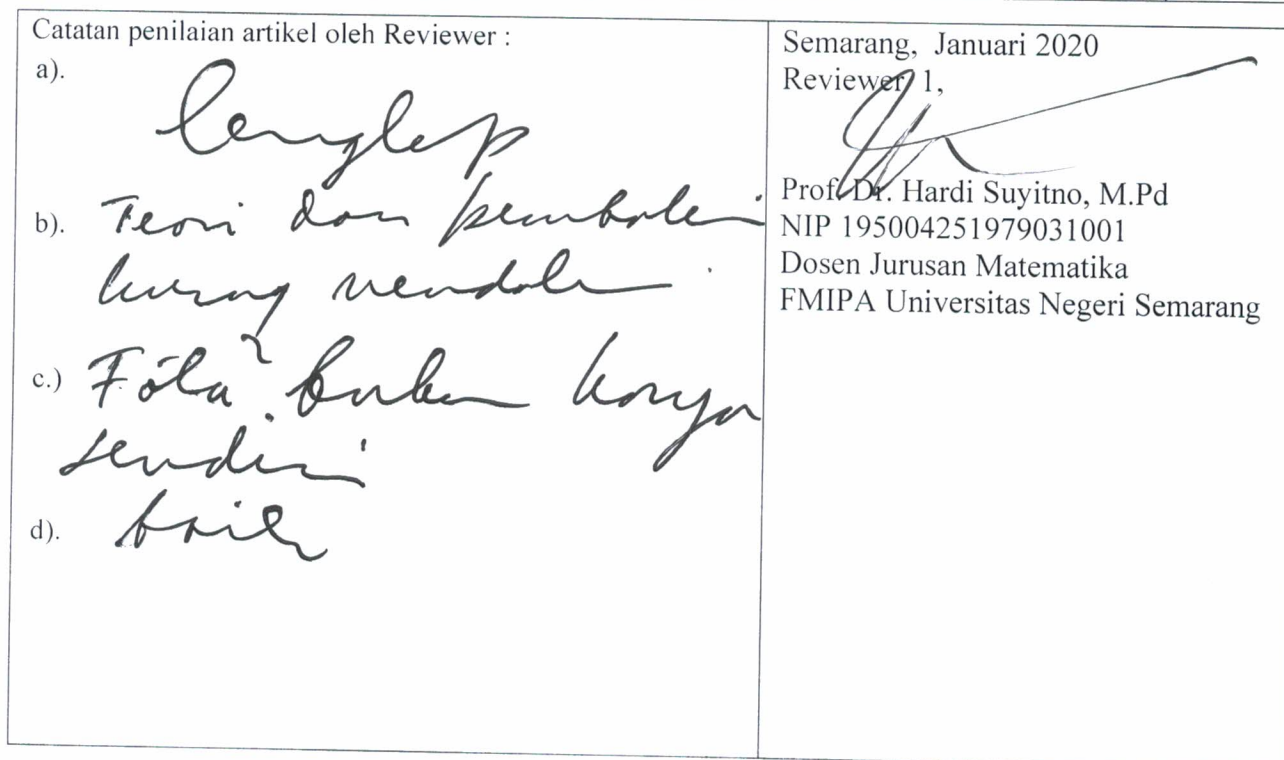 Catatan penilaian artikel oleh Reviewer :
a).
lengkap
b). Teori dan
kurang mendalam.
c.) Foto2 bukan karya
sendiri
d). baik
Semarang, Januari 2020
Reviewer 1,
Prof. Dr. Hardi Suyitno, M.Pd
NIP 195004251979031001
Dosen Jurusan Matematika
FMIPA Universitas Negeri Semarang